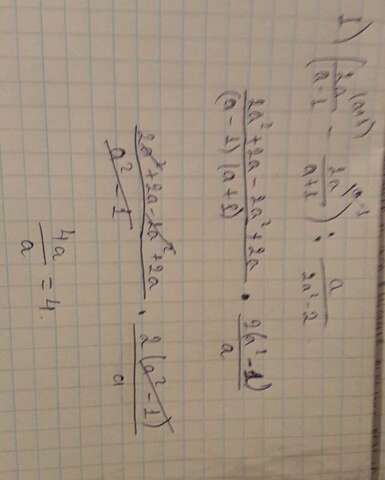 1) (2a/(a-1) (a+1) - 2a/(a+1) (a-1)) : a/(2a²-2)
(2a²+2a-2a²+2a)/((a-1)(a+1)) · 2(a²-1)/a
(2a²+2a-2a²+2a)/(a²-1) · 2(a²-1)/a
4a/a = 4.